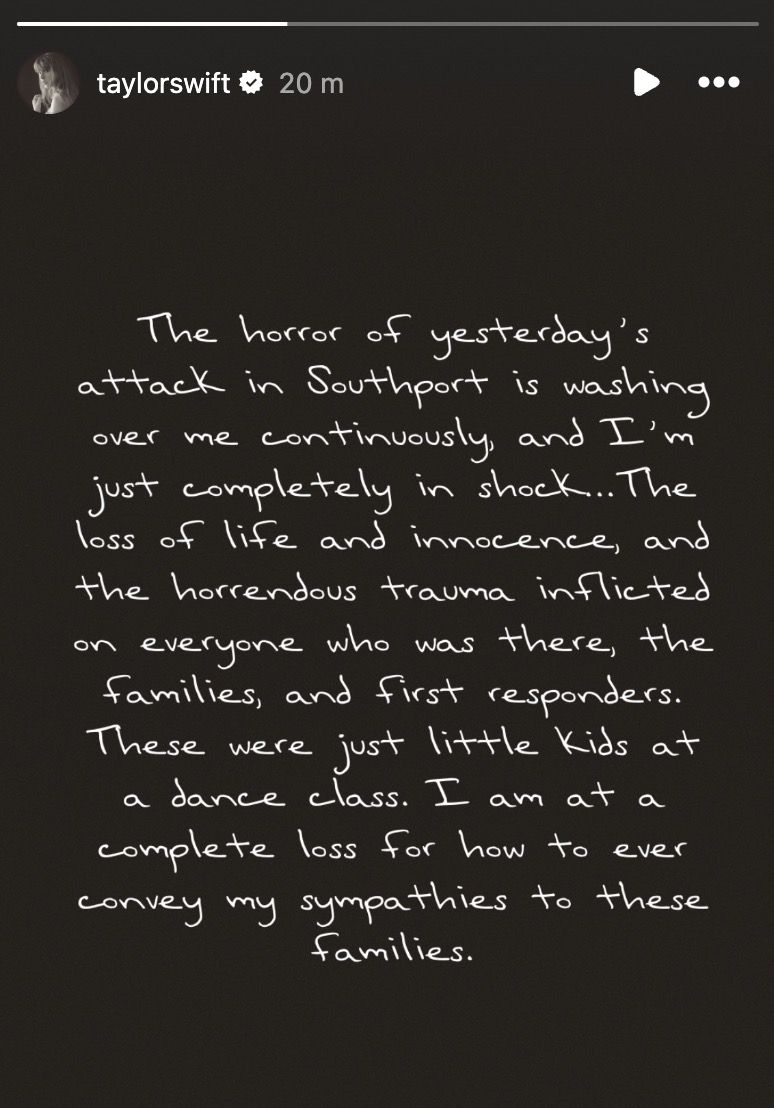 taylorswift 20 m
The horror of yesterday's
attack in Southport is washing
over me continuously, and I'm
just completely in shock...The
loss of life and innocence, and
the horrendous trauma inflicted
on everyone who was there, the
families, and first responders.
These were just little kids at
a dance class. I am at a
complete loss for how to ever
convey my sympathies to these
families.